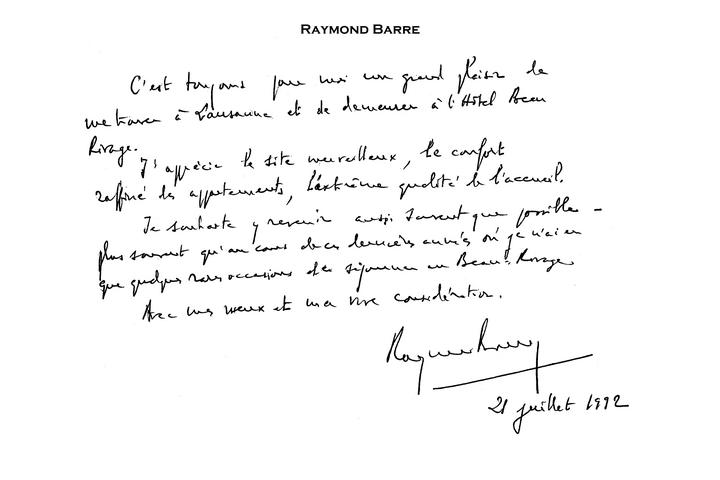 RAYMOND BARRE
C'est toujours pour moi un grand plaisir de
me trouver à Lausanne et de demeurer à l'Hôtel Beau
Rivage.
J'apprécie le site merveilleux, le confort
raffiné des appartements, l'extrême qualité de l'accueil.
Je souhaite y revenir aussi souvent que possible -
plus souvent qu'au cours de ces dernières années où je n'ai eu
que quelques rares occasions de séjourner au Beau-Rivage
Avec mes vœux et ma vive considération.
Raymond Barre
21 juillet 1992